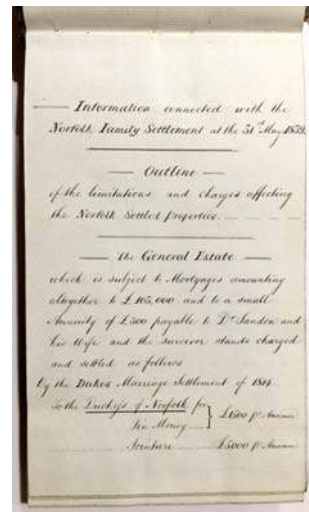 Information connected with the
Norfolk Family Settlement at the 31st May 1839.
Outline
of the limitations and charges affecting
the Norfolk Settled Properties.
The General Estate
which is subject to Mortgages amounting
altogether to £165,000 and to a small
Annuity of £300 payable to Dr Sanden and
his Wife and the survivor stands charged
and settled as follows
By the Dukes Marriage Settlement of 1814.
To the Duchess of Norfolk for
Pin Money } £1500 pr Annum
Jointure £5000 pr Annum